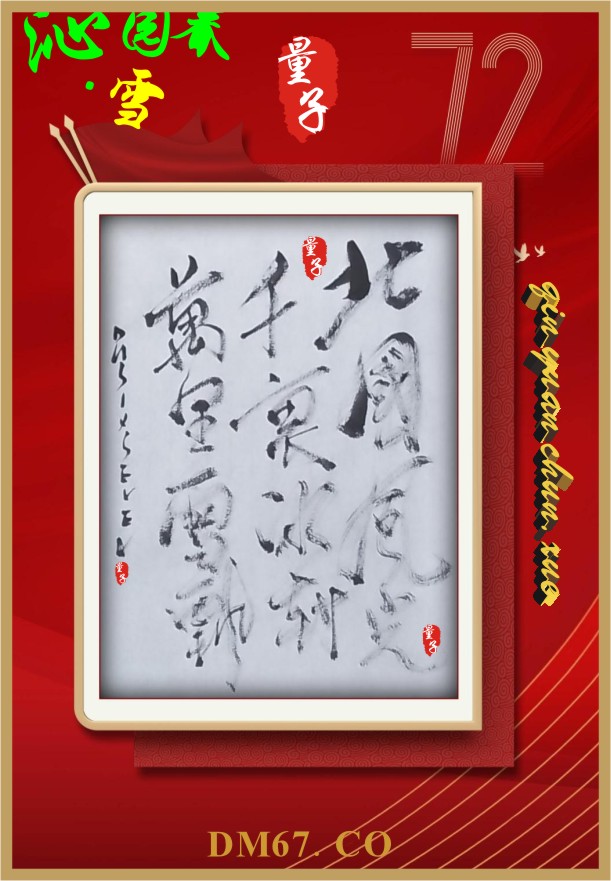 沁园春
·雪
量子
72
量子
北國風光
千裏冰封
萬里雪飄
量子
量子
qin yuan chun. xue
DM67. CO